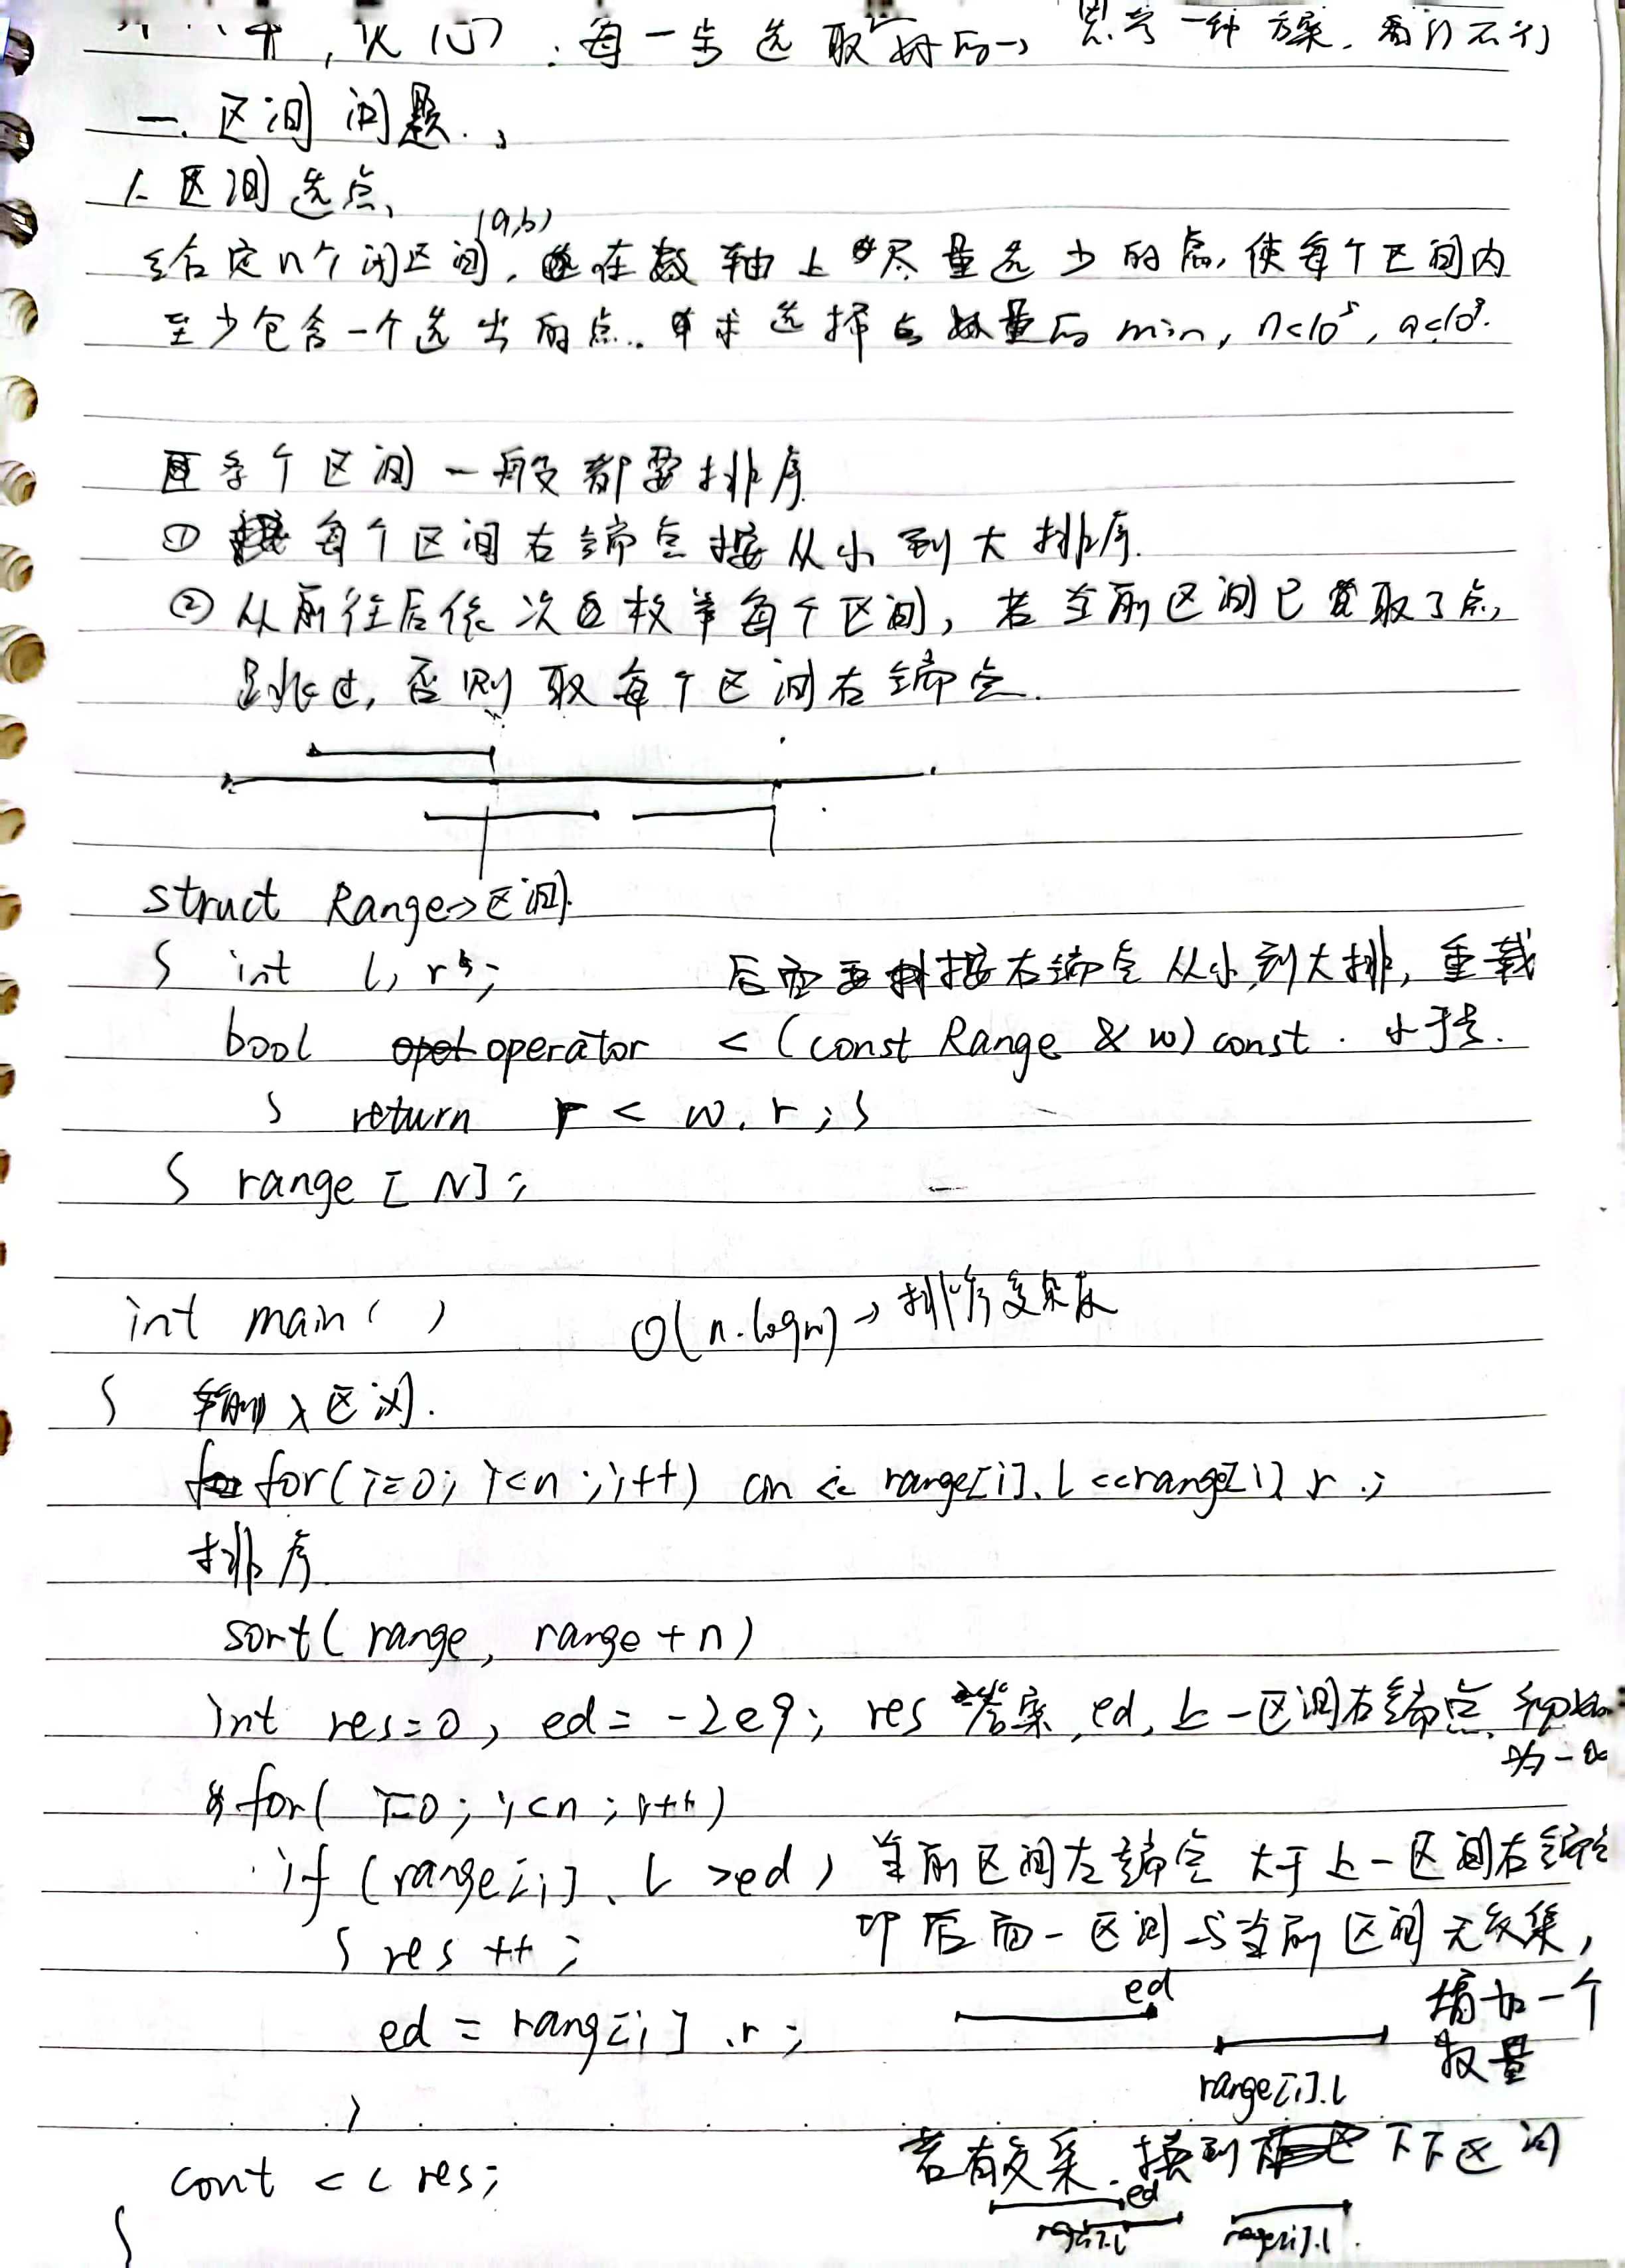 每一步选取 好的 思考一种方案,看行不行
一. 区间问题.
1. 区间选点、
给定n个闭区间(a,b),在数轴上尽量选少的点,使每个区间内
至少包含一个选出的点. 求选择点数量的 min, n<10⁵, a<10⁹.
每个区间一般都要排序
① 每个区间右端点按从小到大排序.
② 从前往后依次枚举每个区间, 若当前区间已取了点,
跳过, 否则取每个区间右端点.
struct Range→区间
{ int l, r; 后面要按右端点从小到大排, 重载
bool operator < (const Range & w) const. 小于号.
{ return r < w.r; }
} range [N];
int main( ) O(n·logn)→排序复杂度
{ 输入区间.
for(i=0; i<n; i++) cin << range[i].l <<range[i].r ;
排序
sort( range, range+n)
int res=0, ed = -2e9; res 答案, ed, 上一区间右端点,
为-∞
for( i=0; i<n; i++)
if (range[i].l >ed) 当前区间左端点 大于上一区间右端点
{ res ++; 即后面一区间与当前区间无交集,
ed 增加一个
ed = rang[i].r; 数量
range[i].l
}
若有交集. 换到 下下区间
cout << res;
ed
range[i].l range[i].l
}